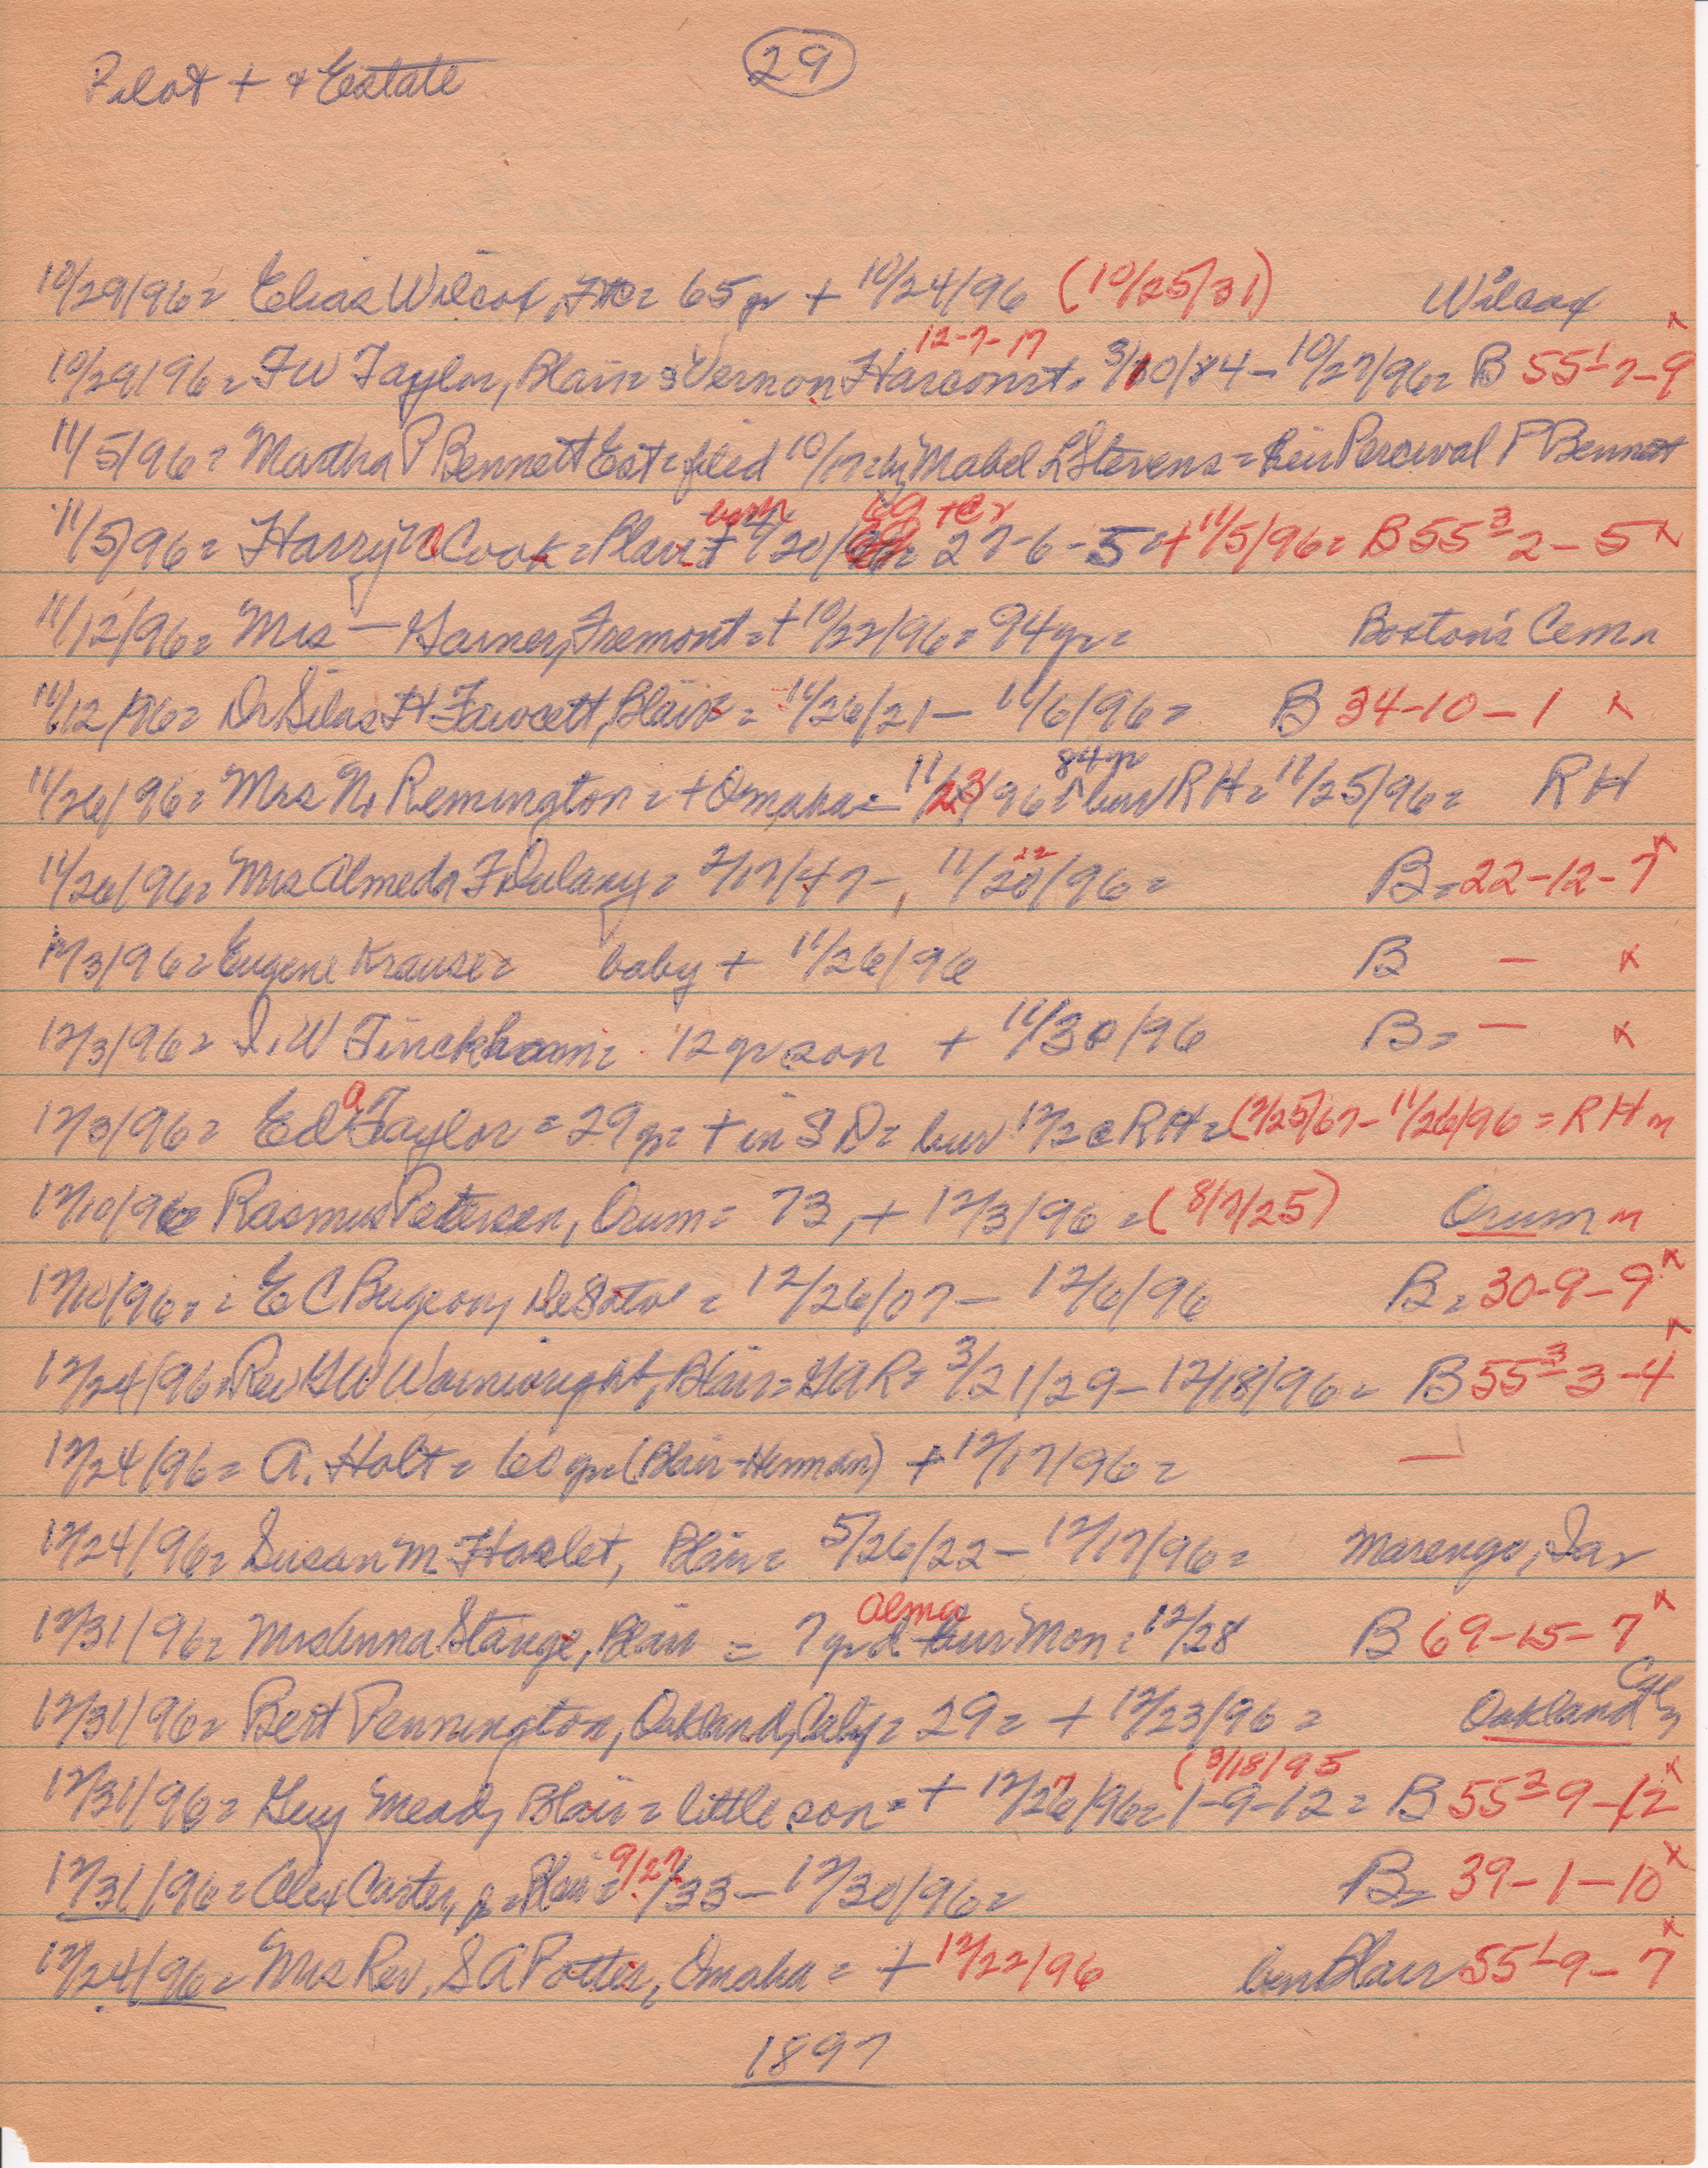 Pilot + & Estate
29
10/29/96= Elias Wilcox, FtC= 65yr + 10/24/96 (10/25/31) Wilcox
12-7-17
10/29/96= FW Taylor, Blair= Vernon Harcourt= 3/10/84 - 10/27/96= B 55 1 7-9 x
11/5/96= Martha P Bennett Est= filed 10/17= by Mabel L Stevens= heir Percival P Bennett
born 69 +er
11/5/96= Harry Cook= Blair 4/20/ 27-6-5= + 11/5/96= B 55 3 2-5 x
11/12/96= Mrs — Garner, Fremont= + 10/22/96= 94yr= Boston's Cem n
11/12/96= Dr Silas H Fawcett, Blair= 11/26/21 - 11/6/96= B 34-10-1 x
84yr
11/26/96= Mrs N. Remington= + Omaha= 11/23/96= bur RH= 11/25/96= RH
22
11/26/96= Mrs Almeda F Dulany= 2/17/47 - 11/20/96= B= 22-12-7 x
12/3/96= Eugene Krause= baby + 11/26/96 B — x
12/3/96= I.W Tinckham= 12yr son + 11/30/96 B= — x
a
12/3/96= Ed Taylor= 29yr= + in SD= bur 12/2 @ RH= (7/25/67 - 11/26/96= RH n
12/10/96= Rasmus Petersen, Orum= 73, + 12/3/96= (8/7/25) Orum n
12/10/96= E C Bugeon, DeSoto= 12/26/07 - 12/6/96 B= 30-9-9 x
12/24/96= Rev GW Wainwright, Blair= GAR= 3/21/29 - 12/18/96= B 55 3 3-4 x
12/24/96= A. Holt= 60yr= (Blair-Herman) + 12/17/96= —
12/24/96= Susan M Haslet, Blair= 5/26/22 - 12/17/96= Marengo, Ia
Alma
12/31/96= Mrs Anna Stange, Blair = 7yr d bur Mon= 12/28 B 69-15-7 x
12/31/96= Bert Pennington, Oakland, Calif= 29= + 12/23/96= Oakland Calif
(3/18/95
12/31/96= Guy Mead, Blair= little son= + 12/27/96= 1-9-12= B 55 2 9-12 x
12/31/96= Alex Carter, Blair= 9/27/33 - 12/30/96= B= 39-1-10 x
12/24/96= Mrs Rev. S A Potter, Omaha= + 12/22/96 bur Blair 55 1 9-7 x
1897